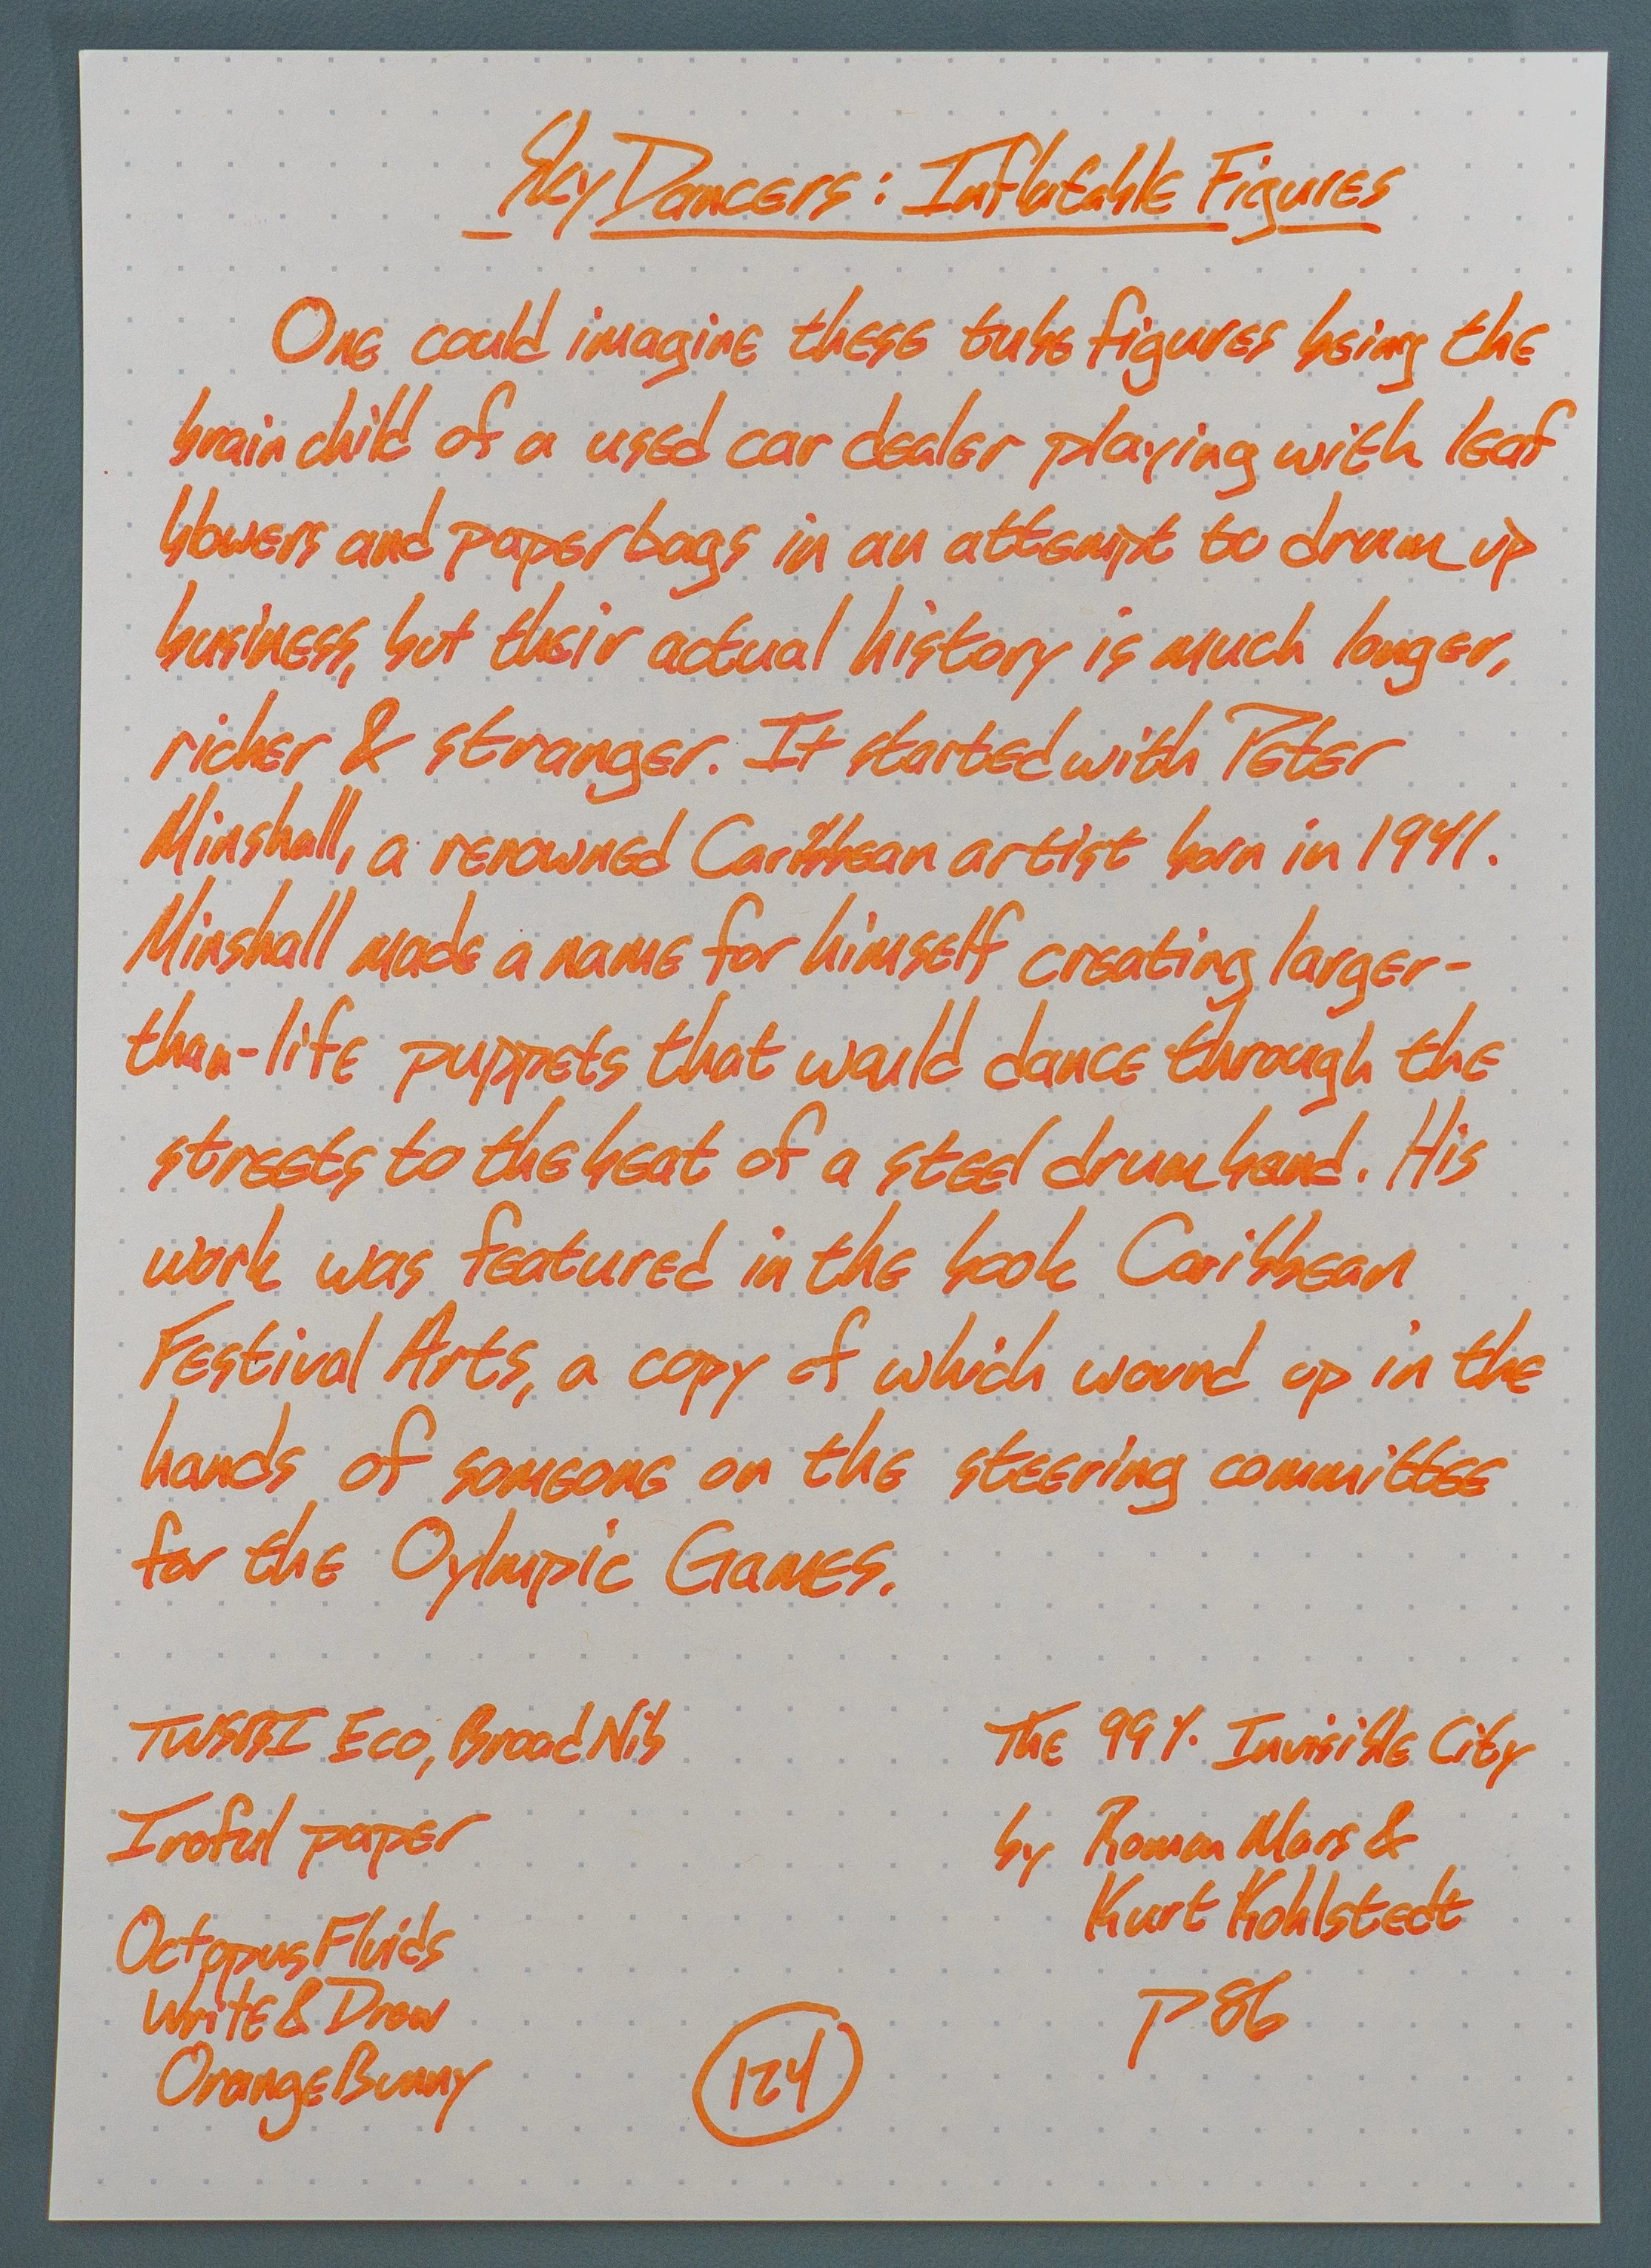 Sky Dancers: Inflatable Figures
One could imagine these tube figures being the
brainchild of a used car dealer playing with leaf
blowers and paper bags in an attempt to drum up
business, but their actual history is much longer,
richer & stranger. It started with Peter
Minshall, a renowned Caribbean artist born in 1941.
Minshall made a name for himself creating larger-
than-life puppets that would dance through the
streets to the beat of a steel drum band. His
work was featured in the book Caribbean
Festival Arts, a copy of which wound up in the
hands of someone on the steering committee
for the Oylmpic Games.
TWSBI Eco, Broad Nib
Iroful paper
Octopus Fluids
Write & Draw
Orange Bunny
124
The 99% Invisible City
by Roman Mars &
Kurt Kohlstedt
P 86